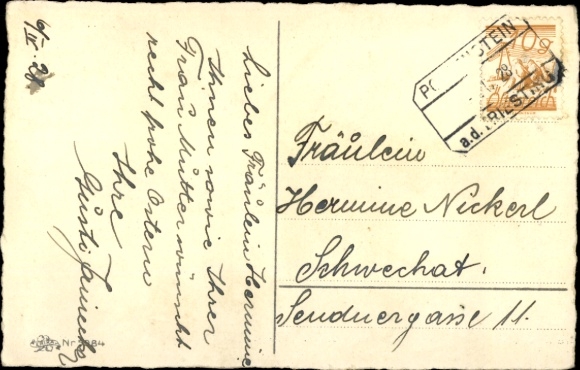 6/IV. 28
Liebes Fräulein Hermine
Ihnen sowie Ihrer
Frau Mutter wünscht
recht frohe Ostern
Ihre
Gusti
10g
STEIN
28
a.d. TRIESTING
Fräulein
Hermine Nickerl
Schwechat.
Sendnergasse 11.
Nr